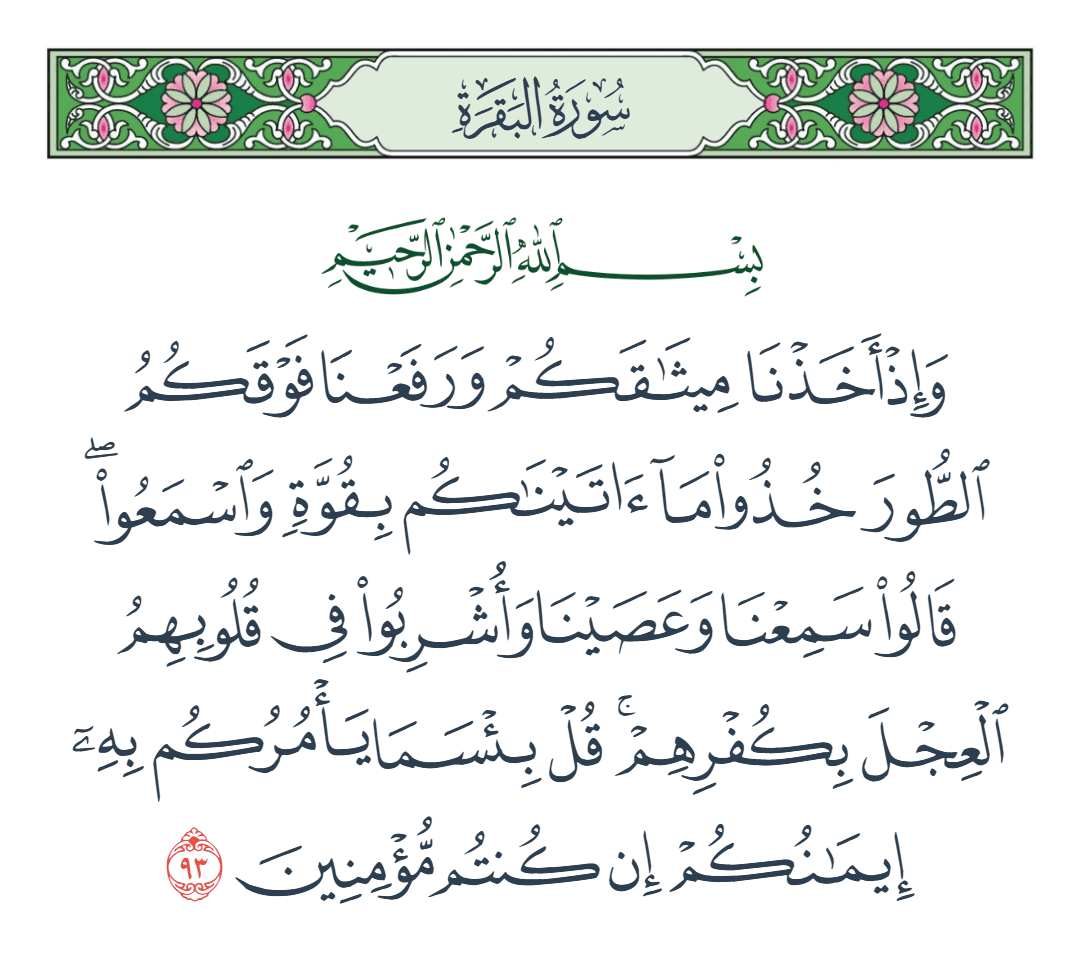 سُورَةُ البَقَرَةِ
بِسْمِ ٱللَّهِ ٱلرَّحْمَٰنِ ٱلرَّحِيمِ
وَإِذْ أَخَذْنَا مِيثَٰقَكُمْ وَرَفَعْنَا فَوْقَكُمُ
ٱلطُّورَ خُذُوا۟ مَآ ءَاتَيْنَٰكُم بِقُوَّةٍ وَٱسْمَعُوا۟ ۖ
قَالُوا۟ سَمِعْنَا وَعَصَيْنَا وَأُشْرِبُوا۟ فِى قُلُوبِهِمُ
ٱلْعِجْلَ بِكُفْرِهِمْ ۚ قُلْ بِئْسَمَا يَأْمُرُكُم بِهِۦٓ
إِيمَٰنُكُمْ إِن كُنتُم مُّؤْمِنِينَ ٩٣